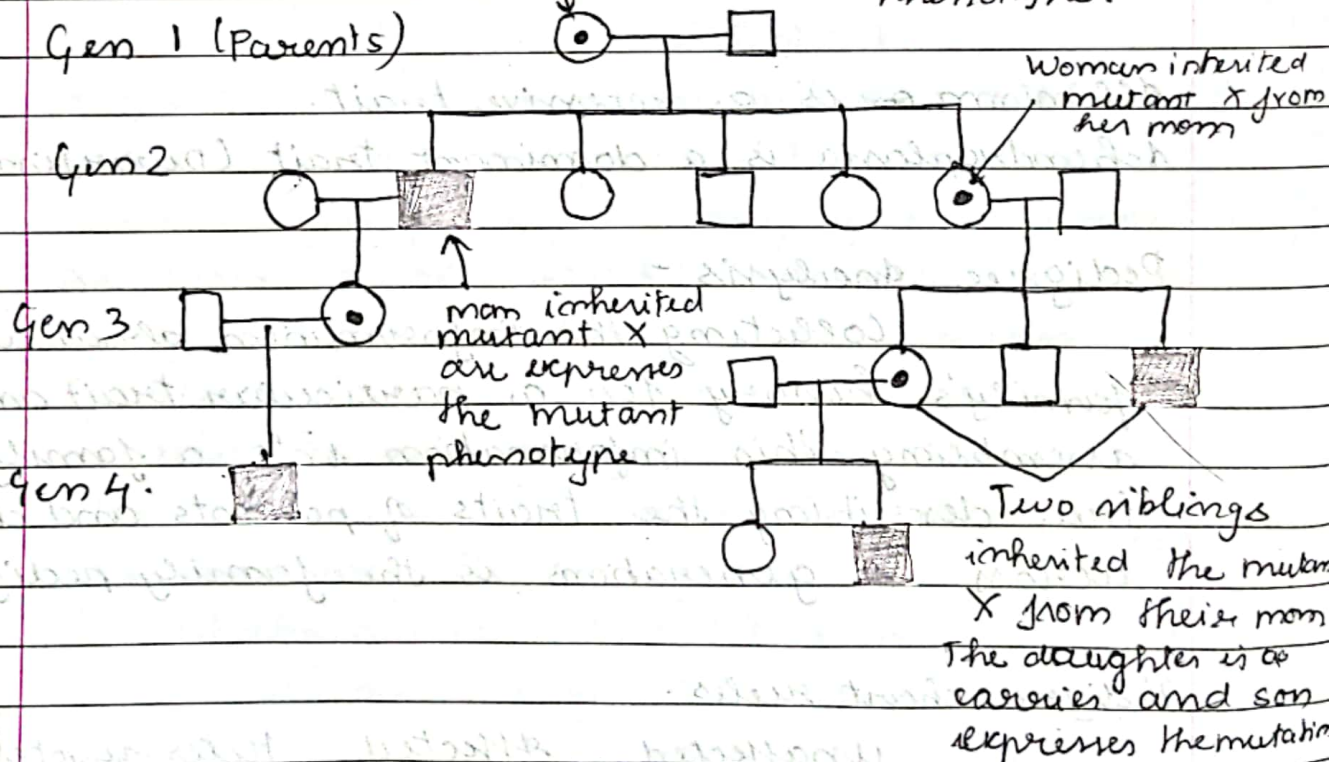 Gen 1 (Parents)
Woman inherited
mutant X from
her mom
Gen 2
Gen 3
man inherited
mutant X
are expresses
the mutant
phenotype
Gen 4.
Two siblings
inherited the mutan
X from their mom
The daughter is a
carrier and son
expresses the mutatio